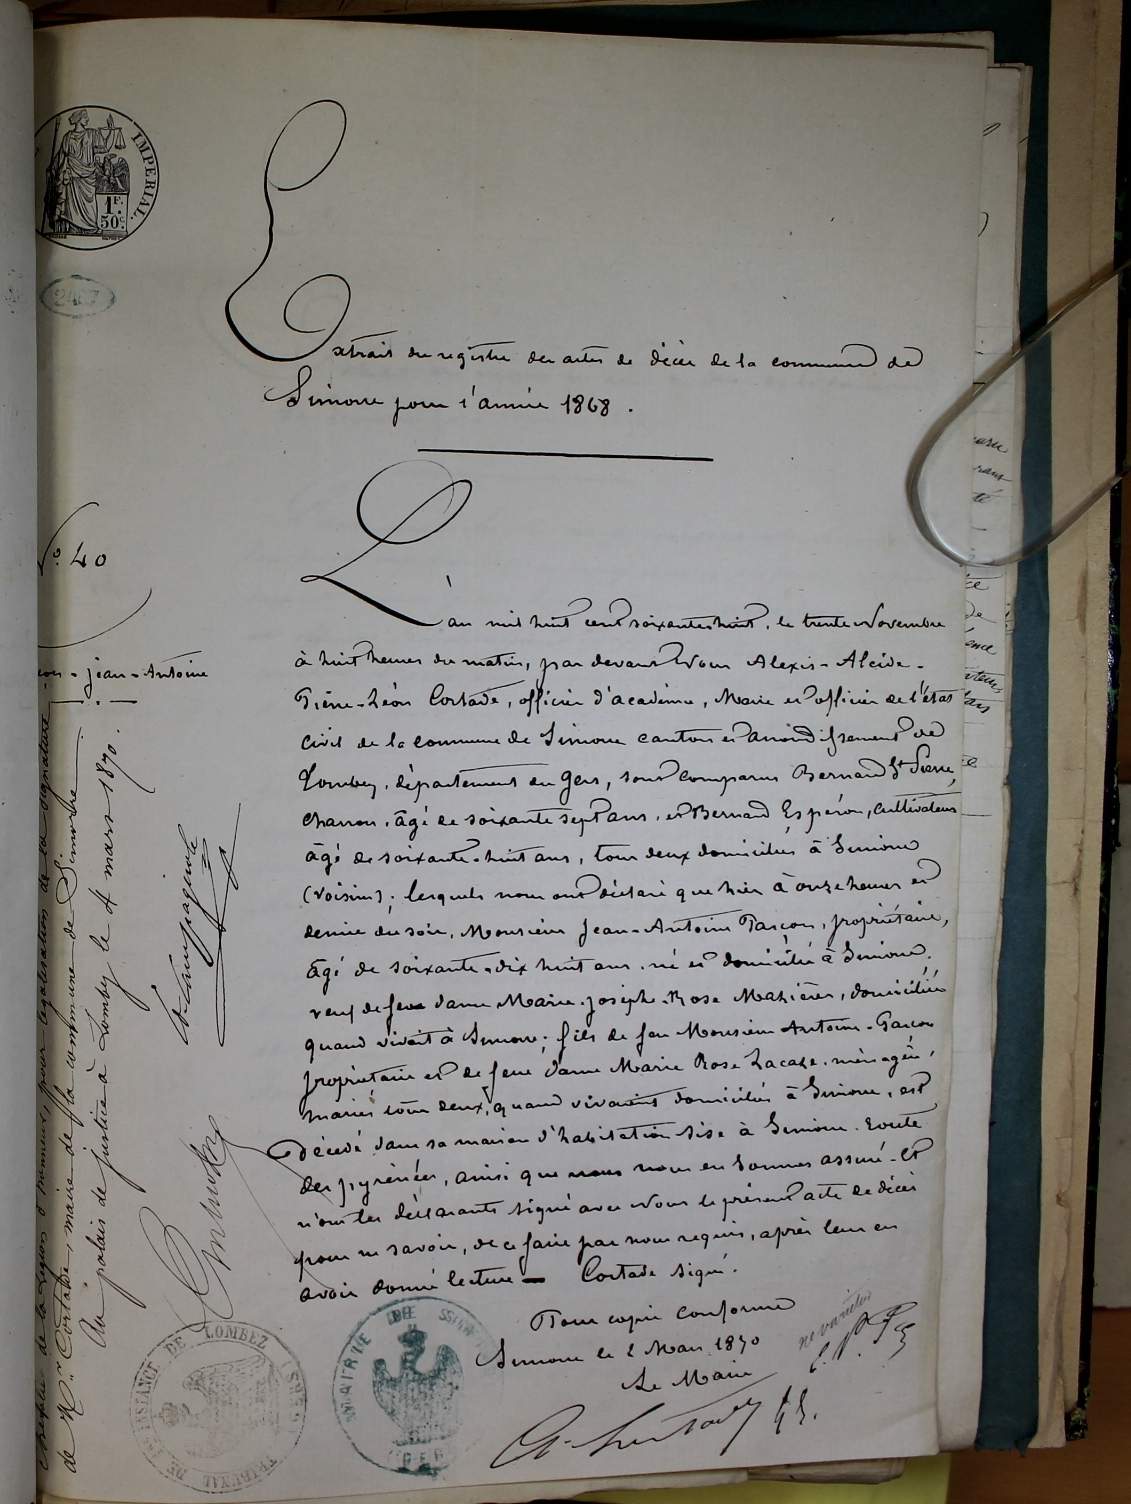 IMPERIAL.
1F.
50c.
2467
Extrait du registre des actes de décès de la commune de
Simorre pour l'année 1868.
N° 40
Jean-Antoine
L'an mil huit cent soixante huit, le trente Novembre
à huit heures du matin, par devant Nous Alexis-Alcide-
Pierre-Léon Cortade, officier d'académie, Maire et officier de l'état
civil de la commune de Simorre canton et arrondissement de
Lombez, département du Gers, sont comparus Bernard St Pierre,
charron, âgé de soixante sept ans, et Bernard Espéron, cultivateur
âgé de soixante-huit ans, tous deux domiciliés à Simorre
(voisins); lesquels nous ont déclaré que hier à onze heures et
demie du soir, Monsieur Jean-Antoine Parcou, propriétaire,
âgé de soixante-dix huit ans, né et domicilié à Simorre,
veuf de feue dame Marie-Josèphe-Rose Mazières, domiciliée
quand vivait à Simorre; fils de feu Monsieur Antoine-
propriétaire et de feue dame Marie Rose Lacaze, ménagère,
mariés tous deux, quand vivaient domiciliés à Simorre, est
décédé dans sa maison d'habitation sise à Simorre. Route
des pyrénées, ainsi que nous nous en sommes assuré. Et
n'ont les déclarants signé avec Nous le présent acte de décès
pour ne savoir, de ce faire par nous requis, après leur en
avoir donné lecture — Cortade signé.
Pour copie conforme
Simorre le 2 Mars 1870
Le Maire
ne varietur
de la Légion d'honneur, pour légalisation de la signature
de Mr Cortade, maire de la commune de Simorre
Au palais de justice à Lombez le 4 mars 1870.
TRIBUNAL DE 1re INSTANCE DE LOMBEZ (GERS)
MAIRIE DE
(GERS)